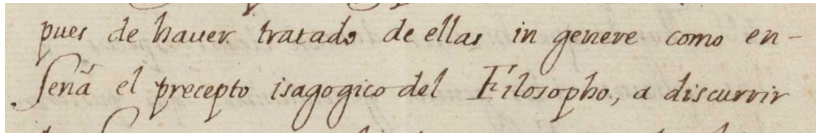 pues de hauer tratado de ellas in genere como en-
señà el precepto isagogico del Filosopho, a discurrir